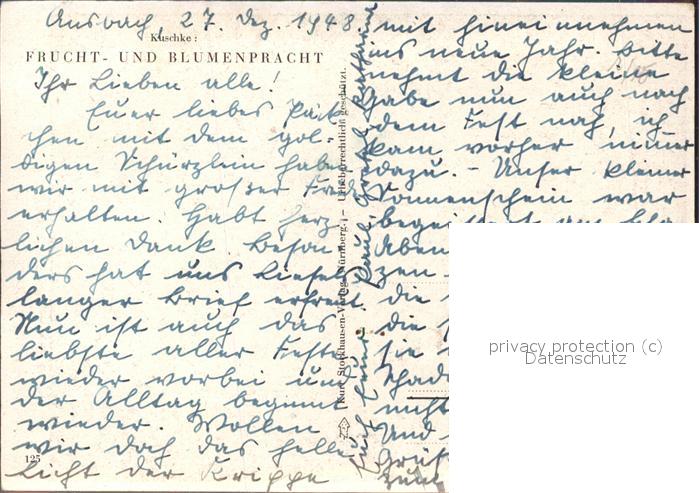 Ansbach, 27. Dez. 1948
Kuschke:
FRUCHT- UND BLUMENPRACHT
Ihr Lieben alle!
Euer liebes Päck
chen mit dem gol-
digen Schürzlein haben
wir mit großer Freude
erhalten. Habt herz
lichen Dank. Beson
ders hat uns Liesels
langer Brief erfreut
Nun ist auch das
liebste aller Feste
wieder vorbei und
der Alltag beginnt
wieder. Wollen
wir doch das helle
Licht der Krippe
125
Kurt Stockhausen-Verlag, Nürnberg. – Urheberrechtlich geschützt.
mit hineinnehmen
ins neue Jahr. Bitte
nehmt die kleine
Gabe nun auch nach
dem Fest nach, ich
kam vorher nimmer
dazu. – Unser kleiner
Sonnenschein war
Aben
zen
die
die
sie
Schad
nicht
Und
Grüß
zum
privacy protection (c)
Datenschutz